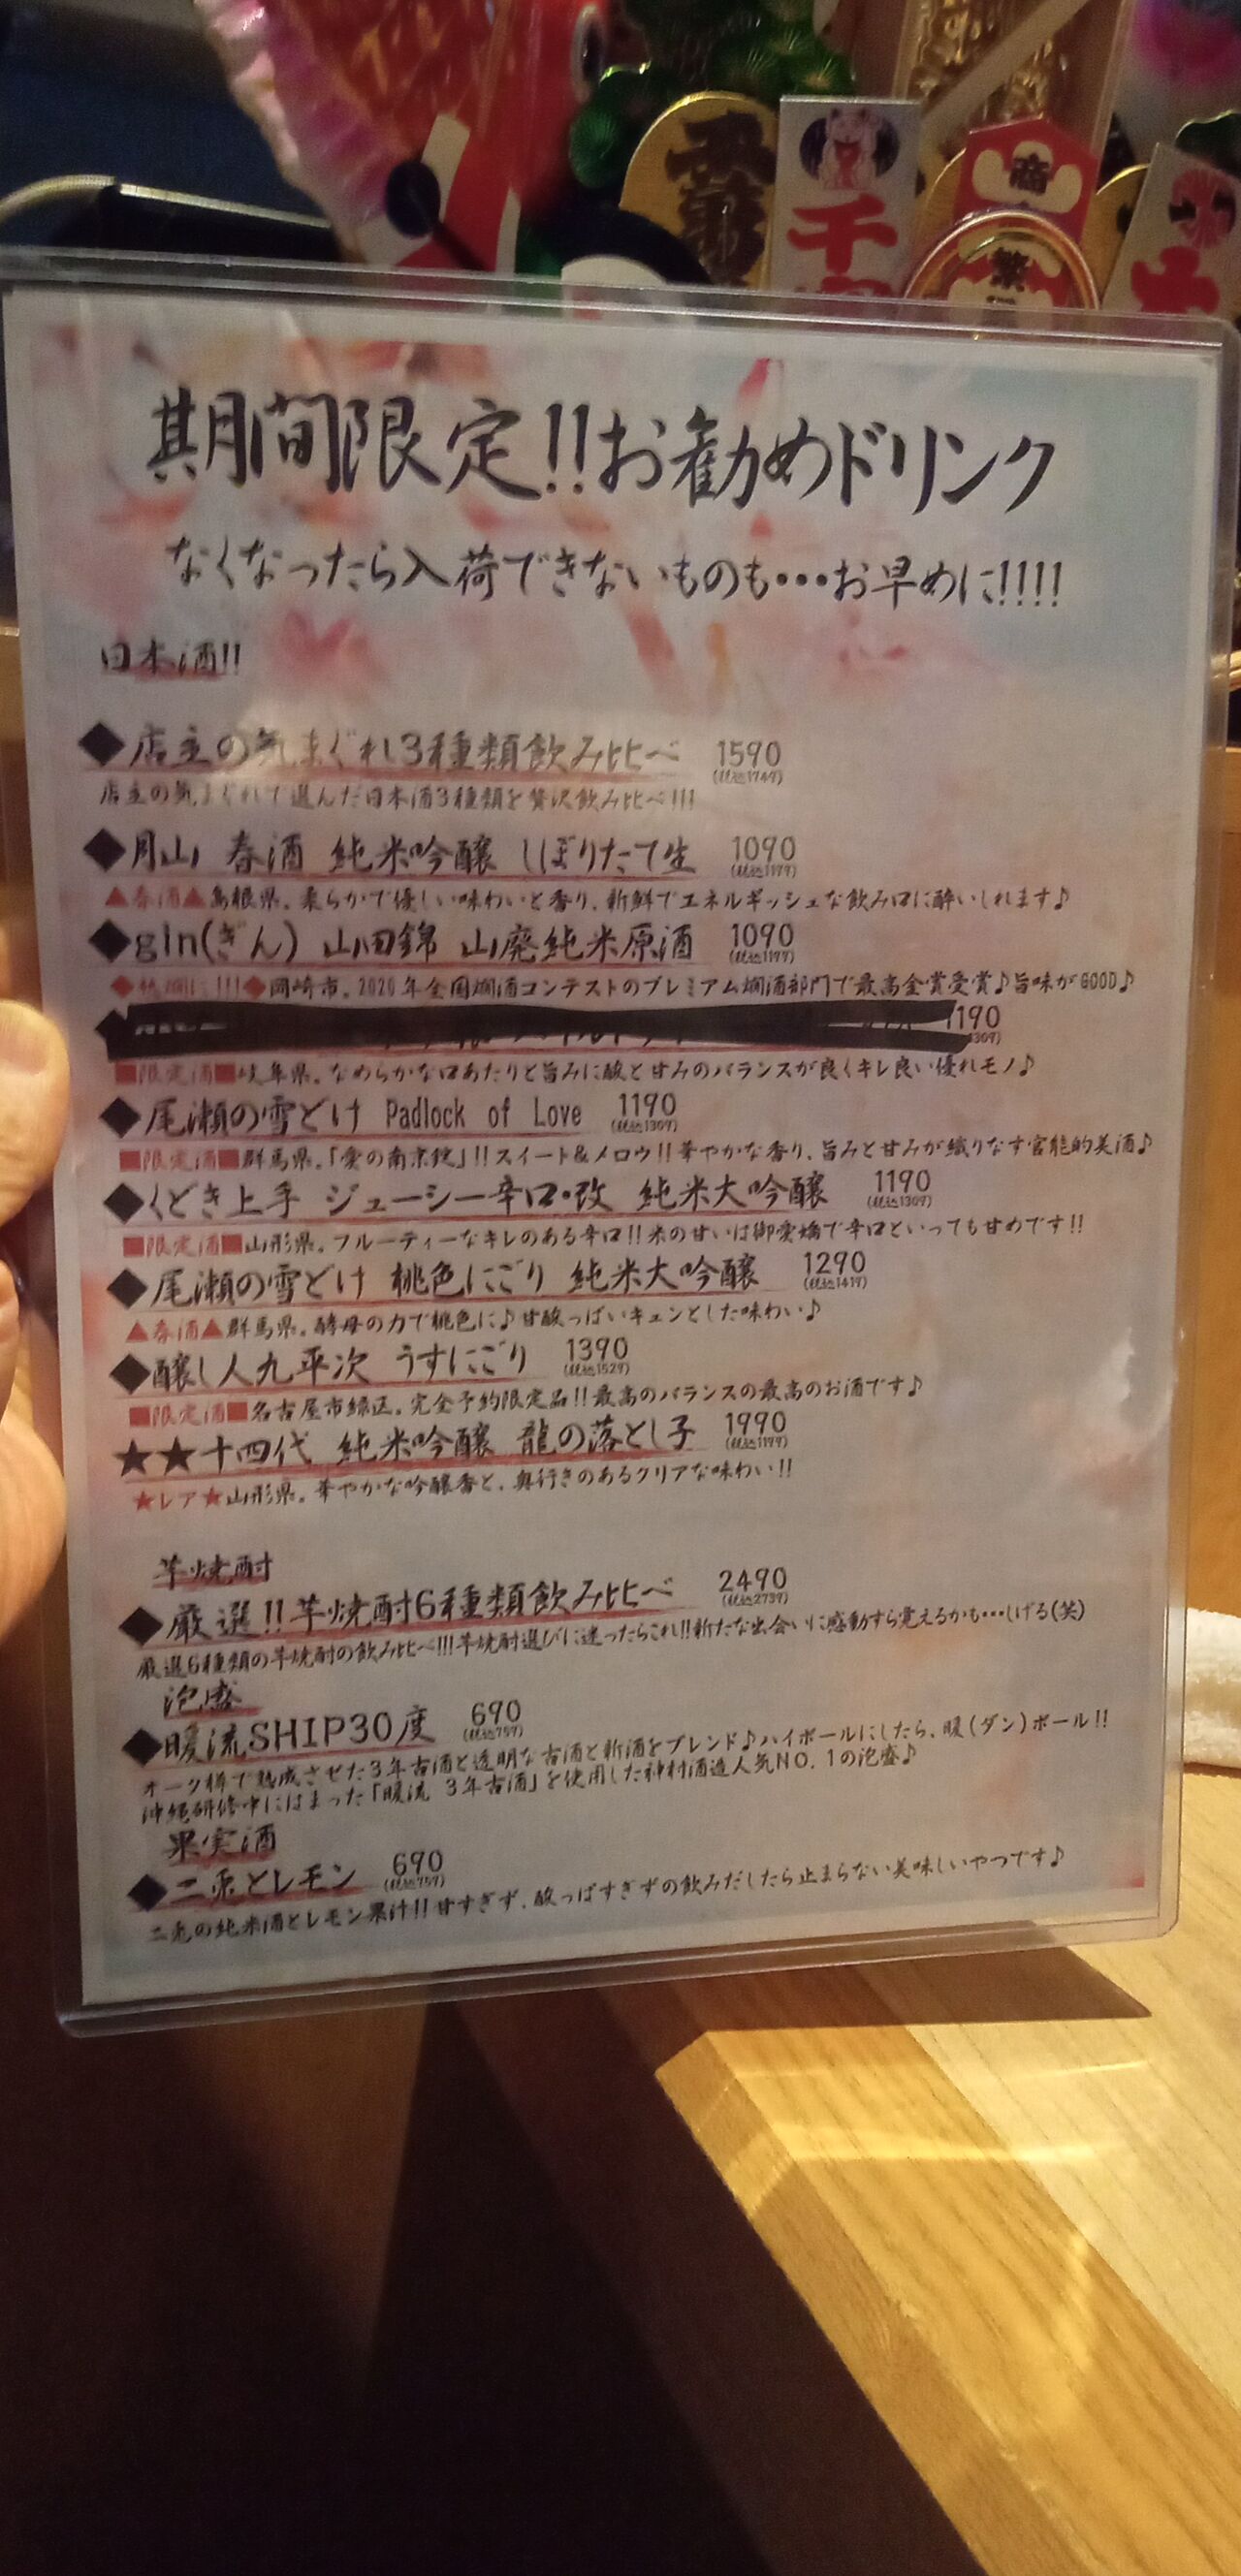 千
商
繁
期間限定!!お勧めドリンク
なくなったら入荷できないものも・・・お早めに!!!!
日本酒!!
◆店主の気まぐれ3種類飲み比べ 1590
(税込1749)
店主の気まぐれで選んだ日本酒3種類を贅沢飲み比べ!!!
◆月山 春酒 純米吟醸 しぼりたて生 1090
(税込1199)
▲春酒▲島根県。柔らかで優しい味わいと香り、新鮮でエネルギッシュな飲み口に酔いしれます♪
◆gin(ぎん) 山田錦 山廃純米原酒 1090
(税込1199)
◆熱燗に!!!◆岡崎市。2020年全国燗酒コンテストのプレミアム燗酒部門で最高金賞受賞♪旨味がGOOD♪
1190
1309)
■限定酒■岐阜県。なめらかな口あたりと旨みに酸と甘みのバランスが良くキレ良い優れモノ♪
◆尾瀬の雪どけ Padlock of Love 1190
(税込1309)
■限定酒■群馬県。「愛の南京錠」!!スイート&メロウ!!華やかな香り、旨みと甘みが織りなす官能的美酒♪
◆くどき上手 ジューシー辛口・改 純米大吟醸 1190
(税込1309)
■限定酒■山形県。フルーティーなキレのある辛口!!米の甘いは御愛嬌で辛口といっても甘めです!!
◆尾瀬の雪どけ 桃色にごり 純米大吟醸 1290
(税込1419)
▲春酒▲群馬県。酵母の力で桃色に♪甘酸っぱいキュンとした味わい♪
◆醸し人九平次 うすにごり 1390
(税込1529)
■限定酒■名古屋市緑区。完全予約限定品!!最高のバランスの最高のお酒です♪
★★十四代 純米吟醸 龍の落とし子 1990
(税込1199)
★レア★山形県。華やかな吟醸香と、奥行きのあるクリアな味わい!!
芋焼酎
◆厳選!!芋焼酎6種類飲み比べ 2490
(税込2739)
厳選6種類の芋焼酎の飲み比べ!!!芋焼酎選びに迷ったらこれ!!新たな出会いに感動すら覚えるかも・・・しげる(笑)
泡盛
◆暖流SHIP30度 690
(税込759)
オーク樽で熟成させた3年古酒と透明な古酒と新酒をブレンド♪ハイボールにしたら、暖(ダン)ボール!!
沖縄研修中にはまった「暖流 3年古酒」を使用した神村酒造人気NO.1の泡盛♪
果実酒
◆二兎とレモン 690
(税込759)
二兎の純米酒とレモン果汁!!甘すぎず、酸っぱすぎずの飲みだしたら止まらない美味しいやつです♪